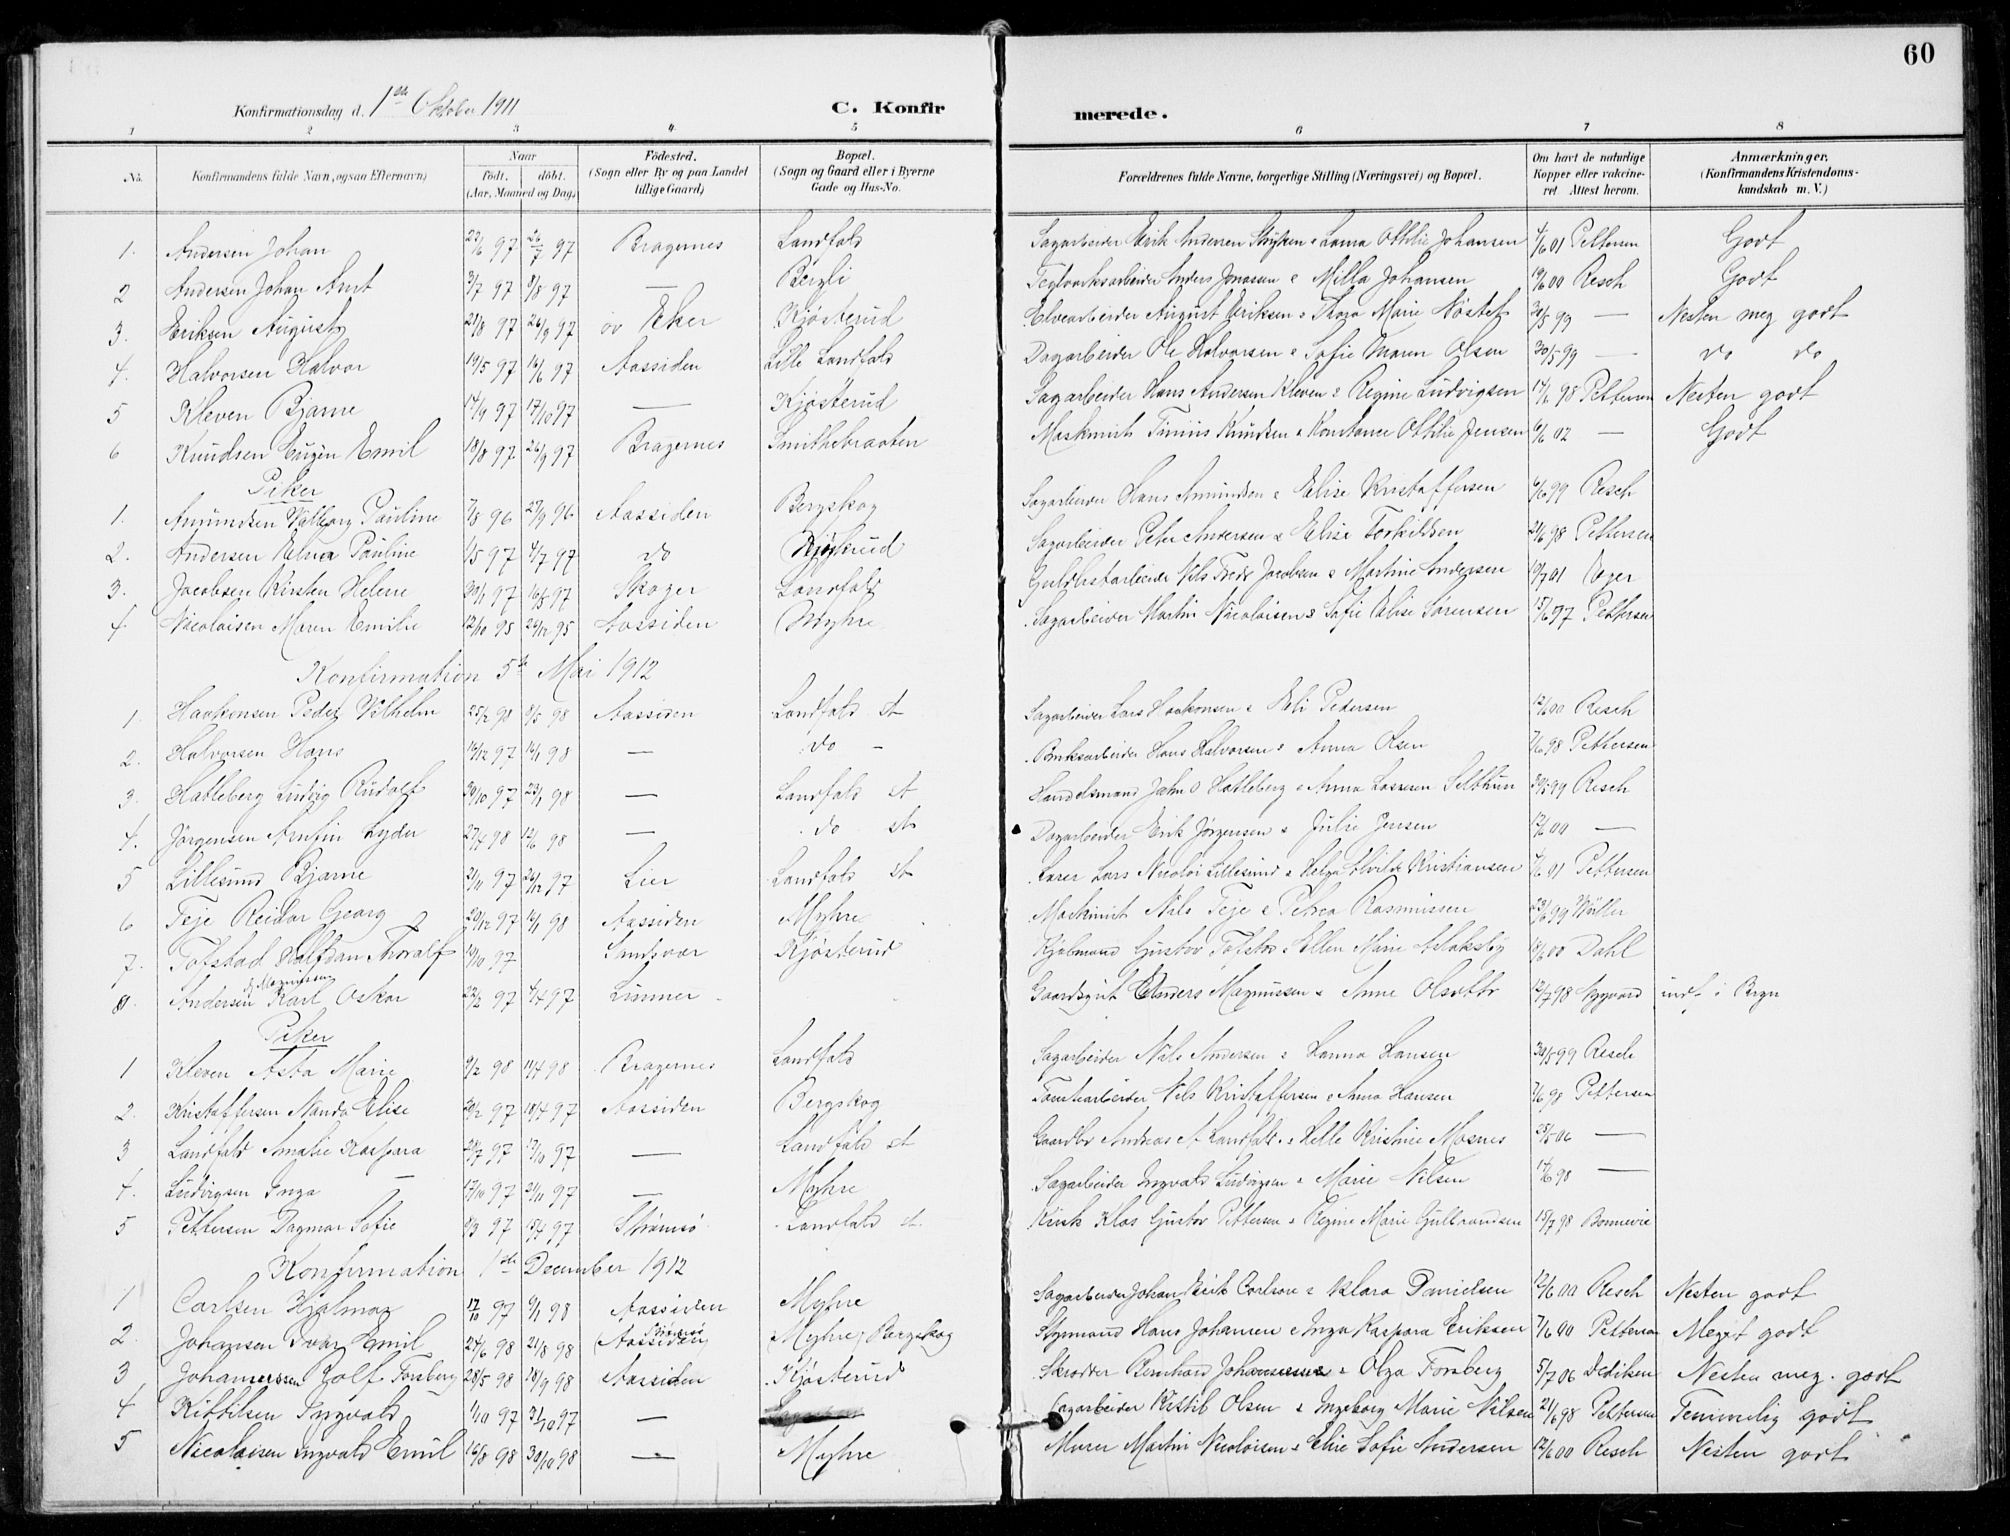 60
Konfirmationsdag d. 1ste Oktober 1911 C. Konfirmerede.
1 2 3 4 5 6 7 8
No. Konfirmandens fulde Navn, ogsaa Efternavn) Naar födt. döbt. (Aar, Maaned og Dag) Födested. (Sogn eller By og paa Landet tillige Gaard) Bopæl. (Sogn og Gaard eller i Byerne Gade og Hus-No. Forældrenes fulde Navne, borgerlige Stilling (Næringsvei) og Bopæl. Om havt de naturlige Kopper eller vakcineret Attest herom. Anmærkninger. (Konfirmandens Kristendomskundskab m. V.)
1. Andersen Johan 22/6 97 26/7 97 Bragernes Landfald Sagarbeider Erik Andersen & Laura Ottilie Johansen 4/6 01 Pettersen Godt
2 Andersen Johan Arnt 3/7 97 8/8 97 — Bergli Teglverksarbeider Anders Jonassen & Milla Johansen 19/6 00 Resch Godt
3. Eriksen August 21/8 97 26/9 97 öv Eker Kjösterud Elvearbeider August Eriksen & Thora Marie Nöstet 30/5 99 — Nesten meg godt
4. Halvorsen Halvor 19/5 97 16/6 97 Aassiden Lille Landfald Dagarbeider Ole Halvorsen & Sofie Maren Olsen 30/5 99 — do do
5 Kleven Bjarne 14/9 97 17/10 97 — Kjösterud Sagarbeider Hans Andersen Kleven & Regine Ludvigsen 14/6 98 Pettersen Nesten godt
6 Knudsen Eugen Emil 18/8 97 26/9 97 Bragernes Smithebraaten Maskinist Knudsen & Konstance Ottilie Jensen 6/6 02 — Godt
Piker
1. Amundsen Valborg Pauline 7/8 96 27/9 96 Aassiden Bergskog Sagarbeider Hans Amundsen & Elise Kristoffersen 6/6 99 Resch
2. Andersen Elna Pauline 1/5 97 4/7 97 do Kjösterud Sagarbeider Peter Andersen & Elise Torkildsen 21/6 98 Pettersen
3. Jacobsen Kirsten Helene 30/1 97 16/5 97 Skoger Landfald Guldlistarbeider Nils Fredr Jacobsen & Martine Andersen 19/7 01
4 Nicolaisen Maren Emilie 12/10 95 26/12 95 Aassiden Myhre Sagarbeider Martin Nicolaisen & Sofie Elise Sörensen 15/6 97 Pettersen
Konfirmation 5te Mai 1912
1. Haakonsen Peder Vilhelm 25/2 98 8/5 98 Aassiden Landfald st Sagarbeider Lars Haakonsen & Eli Pedersen 12/6 00 Resch
2. Halvorsen Hans 14/12 97 16/1 98 — do — Bruksarbeider Hans Halvorsen & Anna Olsen 7/6 98 Pettersen
3. Hatleberg Ludvig Rudolf 30/10 97 23/1 98 — Landfald st Handelsmand Jahn O Hatleberg & Anna Larsesen Selthun 30/5 99 Resch
4. Jörgensen Arnfin Lyder 27/4 98 12/6 98 — do st Dagarbeider Erik Jörgensen & Julie Jensen 12/6 00 —
5 Lillesund Bjarne 21/11 97 26/12 97 Lier Landfald st Lærer Lars Nicolai Lillesund & Helga Alvilde Kristiansen 4/6 01 Pettersen
6 Teje Reidar Georg 20/12 97 16/1 98 Aassiden Myhre Maskinist Nils Teje & Petrea Rasmussen 23/6 99 Müller
7. Tofstad Halfdan Thoralf 14/10 97 Sandsvær Kjösterud Gustav Tofstad & Ellen Marie 18/6 00 Dahl
8. Andersen Magnussen Karl Oskar 22/2 97 4/4 97 Lunner Gaardsgut Anders Magnussen & Anne Olsdtr 12/7 98 Nygaard indt i Bryn
Piker
1 Kleven Asta Marie 9/2 98 11/4 98 Bragernes Landfald Sagarbeider Nils Andersen & Hanna Hansen 30/5 99 Resch
2. Kristoffersen Nanda Elise 20/2 97 18/4 97 Aassiden Bergskog Tomtearbeider Nils Kristoffersen & Anna Hansen 7/6 98 Pettersen
3 Landfald Amalie Kaspara 24/7 97 17/10 97 — Landfald st Gaardbr Andreas A Landfald & Helle Kristine Mosnes 25/5 06 —
4. Ludvigsen Inga — 17/10 97 21/11 97 — Myhre Sagarbeider Ingvald Ludvigsen & Marie Nilsen 14/6 98 —
5 Pettersen Dagmar Sofie 8/3 97 15/4 97 Strömsö Landfald st Kusk Klas Gustav Pettersen & Regine Marie Gulbrandsen 15/7 98 Bonnevie
Konfirmation 1ste December 1912
1 Carlsen Hjalmar 17/10 97 6/1 98 Aassiden Myhre Sagarbeider Johan Erik Carlson & Klara Danielsen 12/6 00 Resch Nesten godt
2. Johansen Ivar Emil 24/6 98 21/8 98 Aassiden Strömsö Myhre, Bergskog Styrmand Hans Johansen & Inga Kaspara Eriksen 7/6 00 Pettersen Meget godt
3 Johannessen Rolf Forsberg 28/5 98 18/9 98 Aassiden Kjösterud Skrædder Bernhard Johannesen & Olga Forsberg 5/7 06 Dedichen Nesten meg. godt
4 Kittilsen Ingvald 1/10 97 31/10 97 — Sagarbeider Kittil Olsen & Ingeborg Marie Nilsen 21/6 98 Pettersen Temmelig godt
5 Nicolaisen Ingvald Emil 16/8 98 30/10 98 — Myhre Murer Martin Nicolaisen & Elise Sofie Andersen 12/6 00 Resch Nesten godt